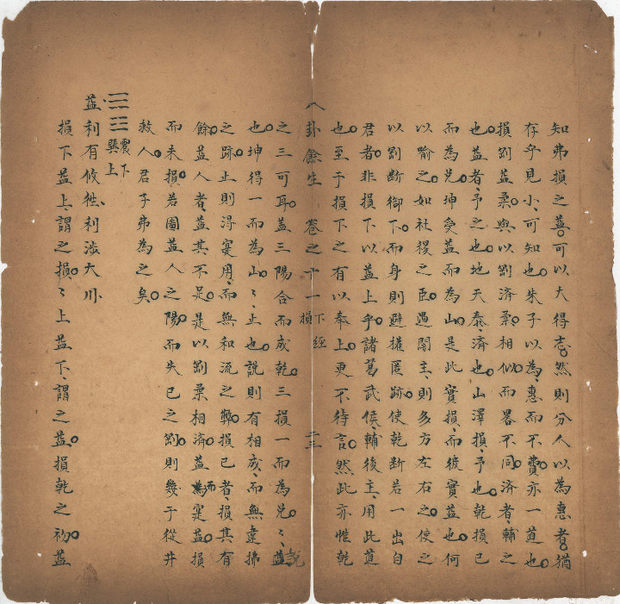 知弗損之益可以大得志然則分人以為惠者猶
存乎見小可知也朱子以為惠而不費亦一道也
損剛益柔與以剛濟柔相似而畧不同濟者輔之
也益者予之也地天泰濟也山澤損予也乾損已
而為兌坤受益而為山是此實損而彼實益也何
以喻之如社稷之臣遇闇主則多方左右之使之
以剛斷御下而身則避權匿跡使乾斷若一出自
君者非損下以益上乎諸葛武侯輔後主用此道
也至于損下之有以奉上更不待言然此亦惟乾
八卦餘生 卷之十一 下經 損
之三可耳蓋三陽合而成乾三損一而為兌〻說
也坤得一而為山〻止也說則有相成而無違拂
之跡止則得寔用而無和流之弊損已者損其有
餘益人者益其不足是以剛柔相濟益而寔益損
而未損若圖益人之陽而失已之剛則幾于從井
救人君子弗為之矣
震下 巽上
益利有攸往利涉大川
損下益上謂之損〻上益下謂之益損乾之初益